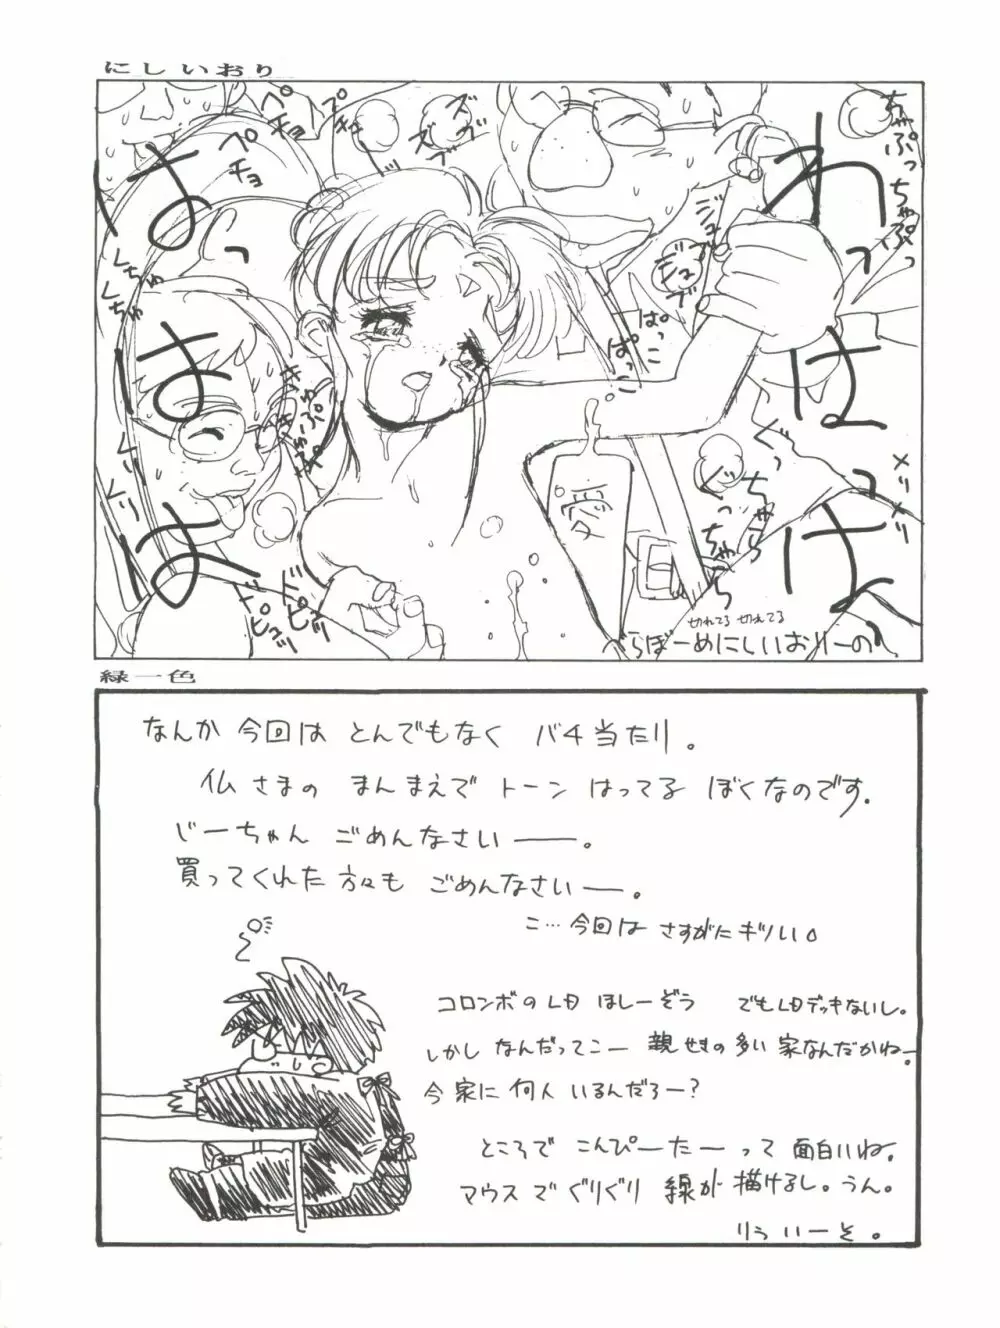 にしいおり
ペチョ
ペチョ
プチュ
ズブ
ズブ
ジュブ
ジュブ
ちゃぷっ
ちゃぷっ
わっはっは
はっはは
くちゅ
くちゅ
ぱっこ
ぱっこ
愛
ぐっちゃら
ぐっちゃら
メリメリ
メリ
くりくり
ドピュッ
ドピュッ
切れてる 切れてる
べらぼーめにしいおりーの
緑一色
なんか 今回は とんでもなく バチ当たり。
仏さまの まんまえで トーン はってる ぼくなのです。
じーちゃん ごめんなさい――。
買ってくれた 方々も ごめんなさい―。
こ…今回は さすがに キツしい。
コロンボの LD ほしーぞう でも LDデッキないし。
しかし なんだってこー 親せきの 多い 家なんだかねー
今 家に 何人 いるんだろー?
ところで こんぴーたーって 面白いね。
マウスで ぐりぐり 線が 描けるし。うん。
りういーそ。